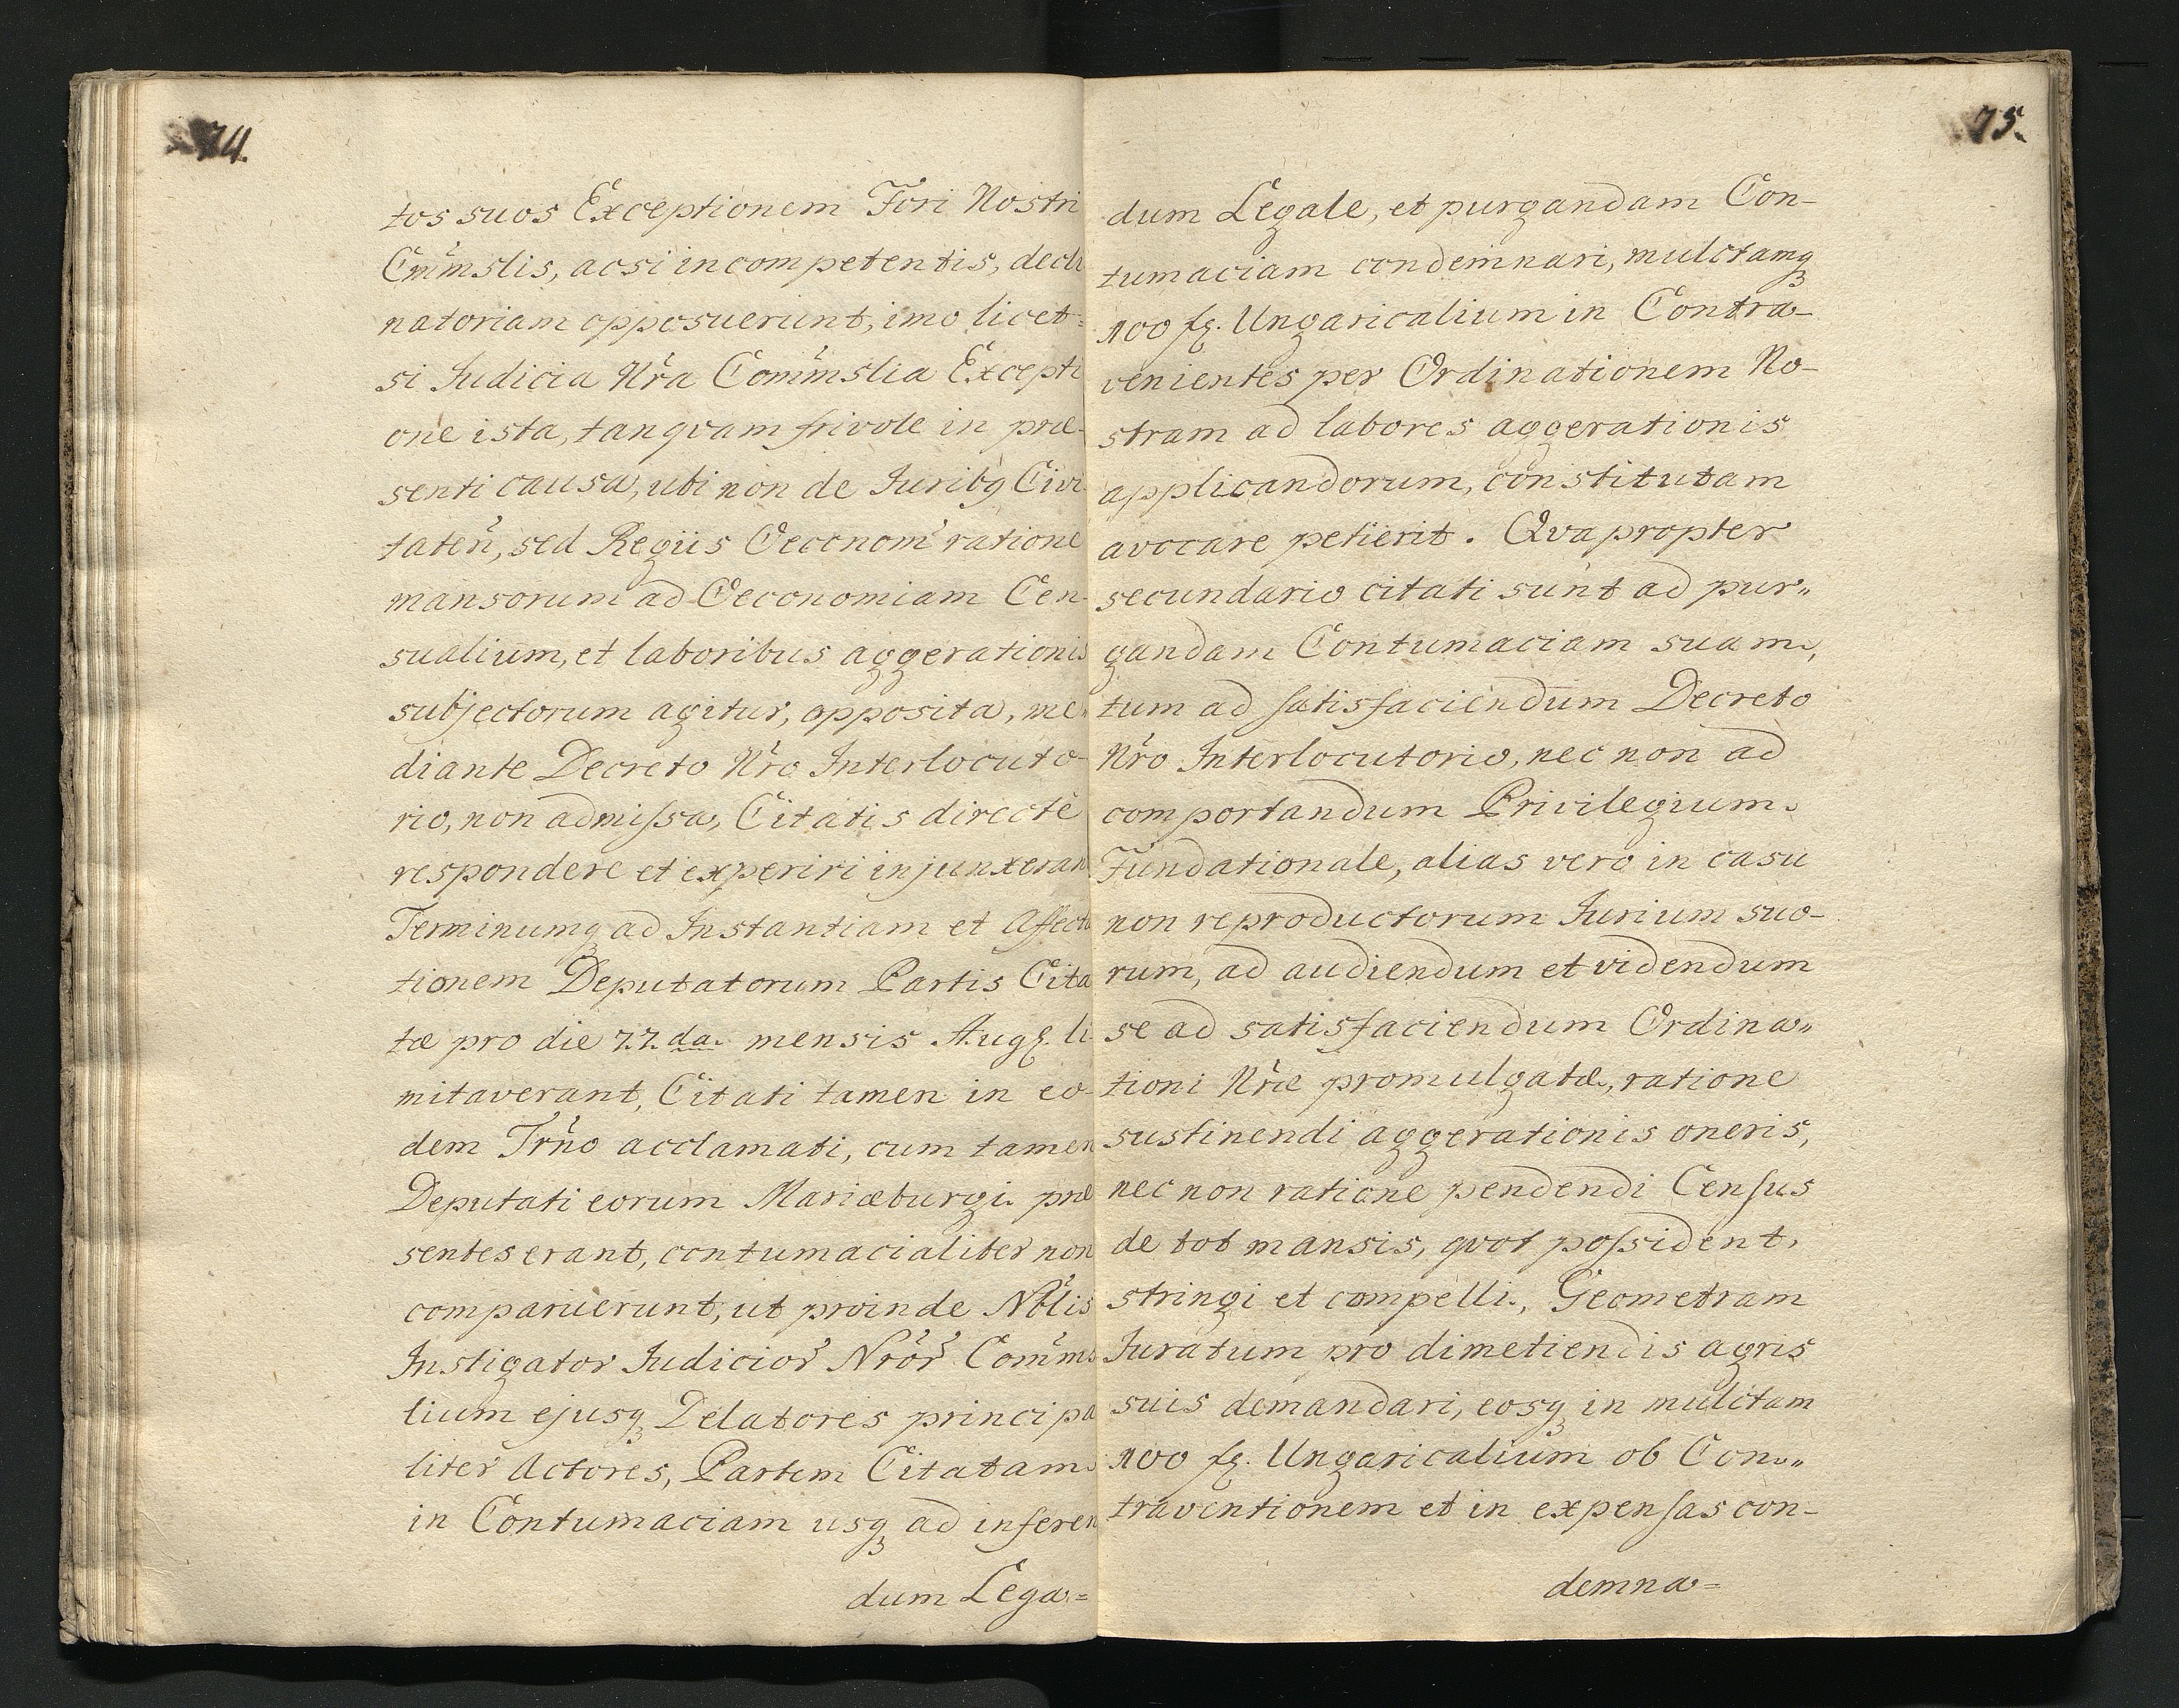 74.
tos suos Exceptionem Fori Nostri
Cm̃mslis, acsi incompetentis, decli
natoriam opposuerunt, imo licet=
si Judicia Nr̃a Com̃mslia Excepti
one ista, tanqvam frivole in præ-
senti causa, ubi non de Juribq Civi
tateñ, sed Regiis Oeconom̃ ratione
mansorum ad Oeconomiam Cen-
sualium, et laboribus aggerationis
subjectorum agitur, opposita, me„
diante Decreto Nr̃o Interlocuto-
rio, non admissa, Citatis directè
respondere et experiri injunxeran
Terminumq ad Instantiam et Affecta
tionem Deputatorum Partis Cita
tæ pro die 22.da. mensis Aug. li-
mitaverant, Citati tamen in eo-
dem Tr̃no acclamati, cum tamen
Deputati eorum Mariæburgi præ
sentes erant, contumacialiter non
comparuerunt, ut proinde Nb̃lis
Instigator Judicior̃ Nr̃or̃ Com̃ms
lium ejusq Delatores principa
liter Actores, Partem Citatam
in Contumaciam usq ad inferen
dum Lega=
75.
dum Legale, et purgandam Con-
tumaciam condemnari, mulctamq
100 fl. Ungaricalium in Contra-
venientes per Ordinationem No-
stram ad labores aggerationis
applicandorum, constitutam
avocare petierit. Qvapropter
secundario citati sunt ad pur„
gandam Contumaciam suam,
tum ad satisfaciendum Decreto
Nr̃o Interlocutorio, nec non ad
comportandum Privilegium
Fundationale, alias vero in casu
non reproductorum Jurium suo-
rum, ad audiendum et videndum
se ad satisfaciendum Ordina„
tioni Nr̃æ promulgatæ, ratione
sustinendi aggerationis oneris,
nec non ratione pendendi Census
de tot mansis, qvot possident,
stringi et compelli, Geometram
Juratum pro dimetiendis agris
suis demandari, eosq in mulctam
100 fl. Ungaricalium ob Con„
traventionem et in expensas con-
demna=